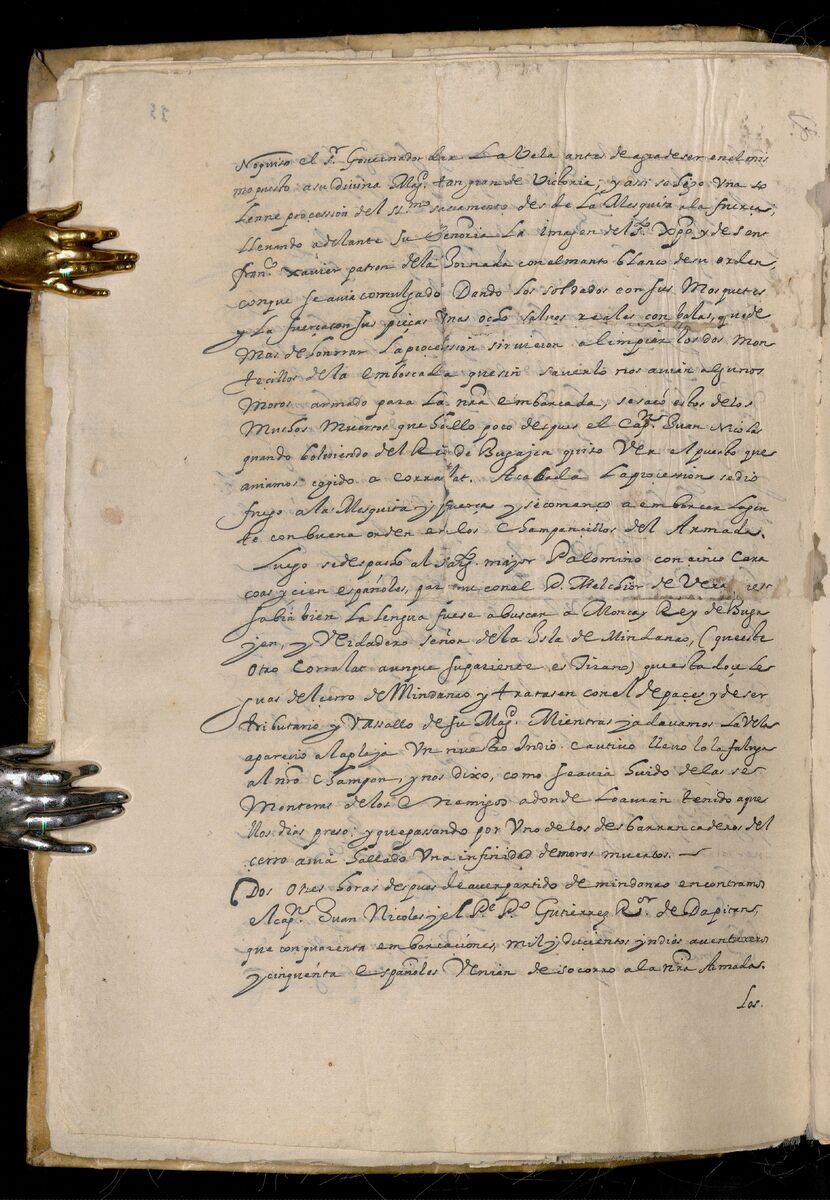 No quiso el S.r Gouernador dar La Vela antes de agradeser en el mis
mo puesto a su Diuina Mag.d tan gran de Victoria; y assi se hizo Vna so
lenne procession del SS.mo sacramento desde La Mesquita a la fuerça;
lleuando adelante su Señoria La imagen del S.r Xpo, y de San
fran.co Xauier patron dela Jornada con el manto blanco de su orden,
con que se auia comulgado Dando Los soldados con sus Mosquetes
y La fuerça con sus pieças Vnas ocho saluas reales con balas, que de
Mas de honrrar La procession siruieron a limpiar los dos Mon
tecillos de la emboscada que sin sauerlo nos auian algunos
Moros armado para La nra embarcada, se sacó estos delos
Muchos Muertos que hallo poco despues el Cap.n Juan Nicolas
quando boluiendo del Rio de Buhajen quiso Ver el puesto que
auiamos cogido a corralat. Acabada La procession se dio
fuego a la Mesquita y fuerça y se començo a embarcar La gen
te con buena orden en los Champancillos del Armada.
Luego se despacho al sarg.to mayor Palomino con cinco Cara
coas y cien españoles, par que con el P. Melchor de Vera,
sabia bien La Lengua fuese a buscar a Moncay Rey de Buha
jen, y Verdadero señor dela Isla de Mindanao, (que este
Otro Corralat aunque su pariente es Tirano) que esta doçe Le
guas del cerro de Mindanao y tratasen con el de paçes y de ser
tributario y Vassallo de su Mag.d Mientras ya dauamos La Vela
aparecio a la playa Vn nuestro Indio cautiuo lleuo lo la falua
al nro Champan, y nos dixo, como se auia huido de las se
Menteras de los Enemigos adonde Lo auian tenido aque
llos dias preso; y que passando por Vno de los desbarrancaderos del
cerro auia hallado Vna infinidad de moros muertos. —
Dos o tres horas despues de auer partido de mindanao encontramos
el cap.n Juan Nicolas y el P.e P.o Gutierrez R.or de Dapitan,
que con quarenta embarcaciones, mil y ducientos yndios auentureros
y cinquenta Españoles Venian de socorro a la nra Armada.
Los.